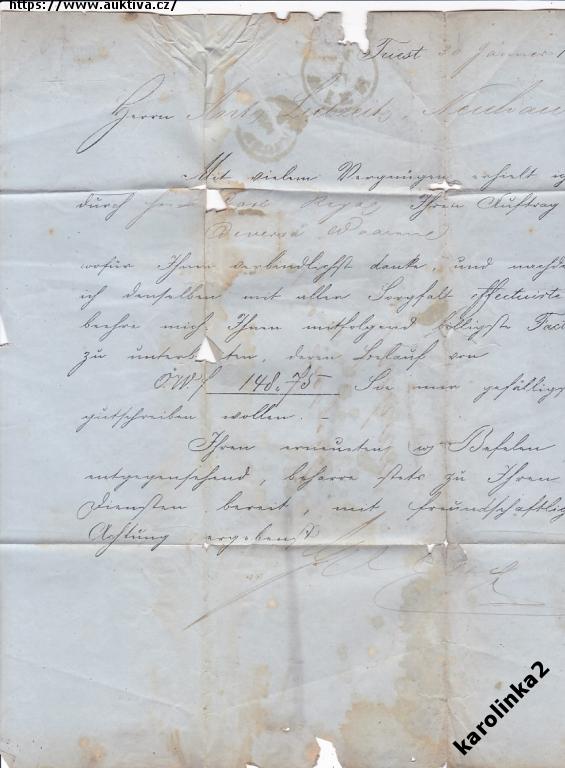 https://www.auktiva.cz/
Triest 30 Jänner 1
Herrn Neuhau
Mit vielem Vergnügen erhielt ic
durch Herrn Ihren Auftrag
Diversa
wofür Ihnen verbindlichst danke, und nachde
ich denselben mit aller Sorgfalt effectuirte
beehre mich Ihnen mitfolgend billigste Fact
zu unterbreiten, deren Belauf von
Ö.W.f 148.75 Sie mir gefällig
gutschreiben wollen. –
Ihren erneuerten Befelen
entgegensehend, beharre stets zu Ihren
Diensten bereit, mit freundschaftlic
Achtung ergebenst
karolinka2